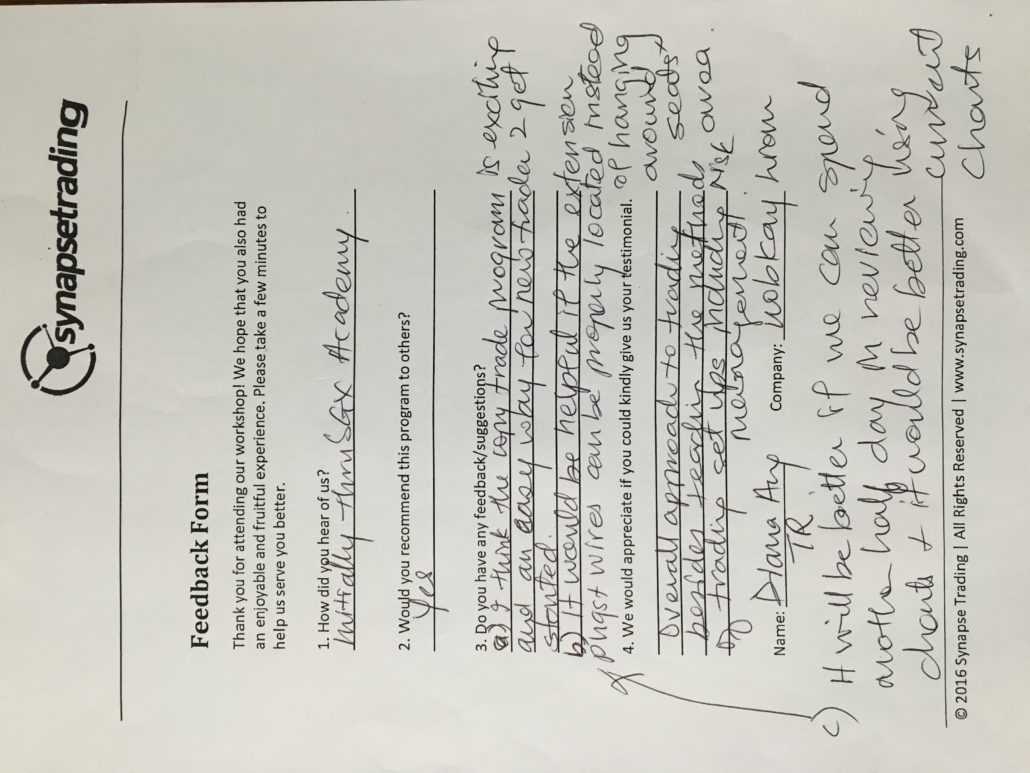 synapsetrading
Feedback Form
Thank you for attending our workshop! We hope that you also had
an enjoyable and fruitful experience. Please take a few minutes to
help us serve you better.
1. How did you hear of us?
Initially thru SGX Academy.
2. Would you recommend this program to others?
Yes
3. Do you have any feedback/suggestions?
a) I think the copy trade program is exciting
and an easy way for new trader 2 get
started.
b) It would be helpful if the extension
plugs + wires can be properly located instead
of hanging
around
seats
area.
4. We would appreciate if you could kindly give us your testimonial.
Overall approach to trading
besides teaching the methods
of trading set ups including risk
management
Name: Diana Ang
Company:
c) It will be better if we can spend
another half day in reviewing
charts + it would be better using
current
charts
© 2016 Synapse Trading | All Rights Reserved | www.synapsetrading.com